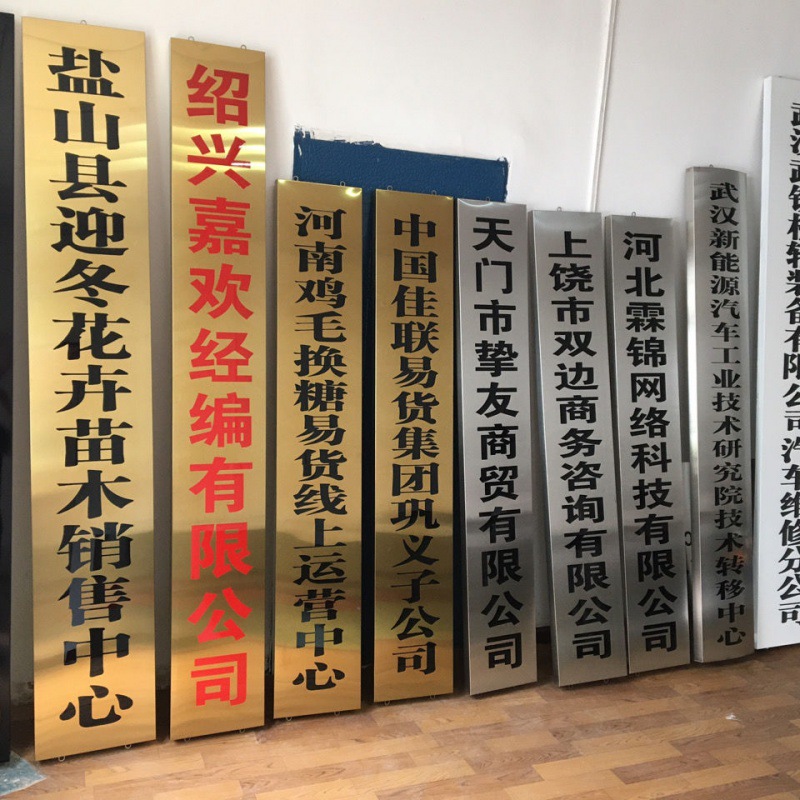 盐山县迎冬花卉苗木销售中心
绍兴嘉欢经编有限公司
河南鸡毛换糖易货线上运营中心
中国佳联易货集团巩义子公司
天门市挚友商贸有限公司
上饶市双边商务咨询有限公司
河北霖锦网络科技有限公司
武汉新能源汽车工业技术研究院技术转移中心
武汉武铁机辆装备有限公司汽车维修分公司